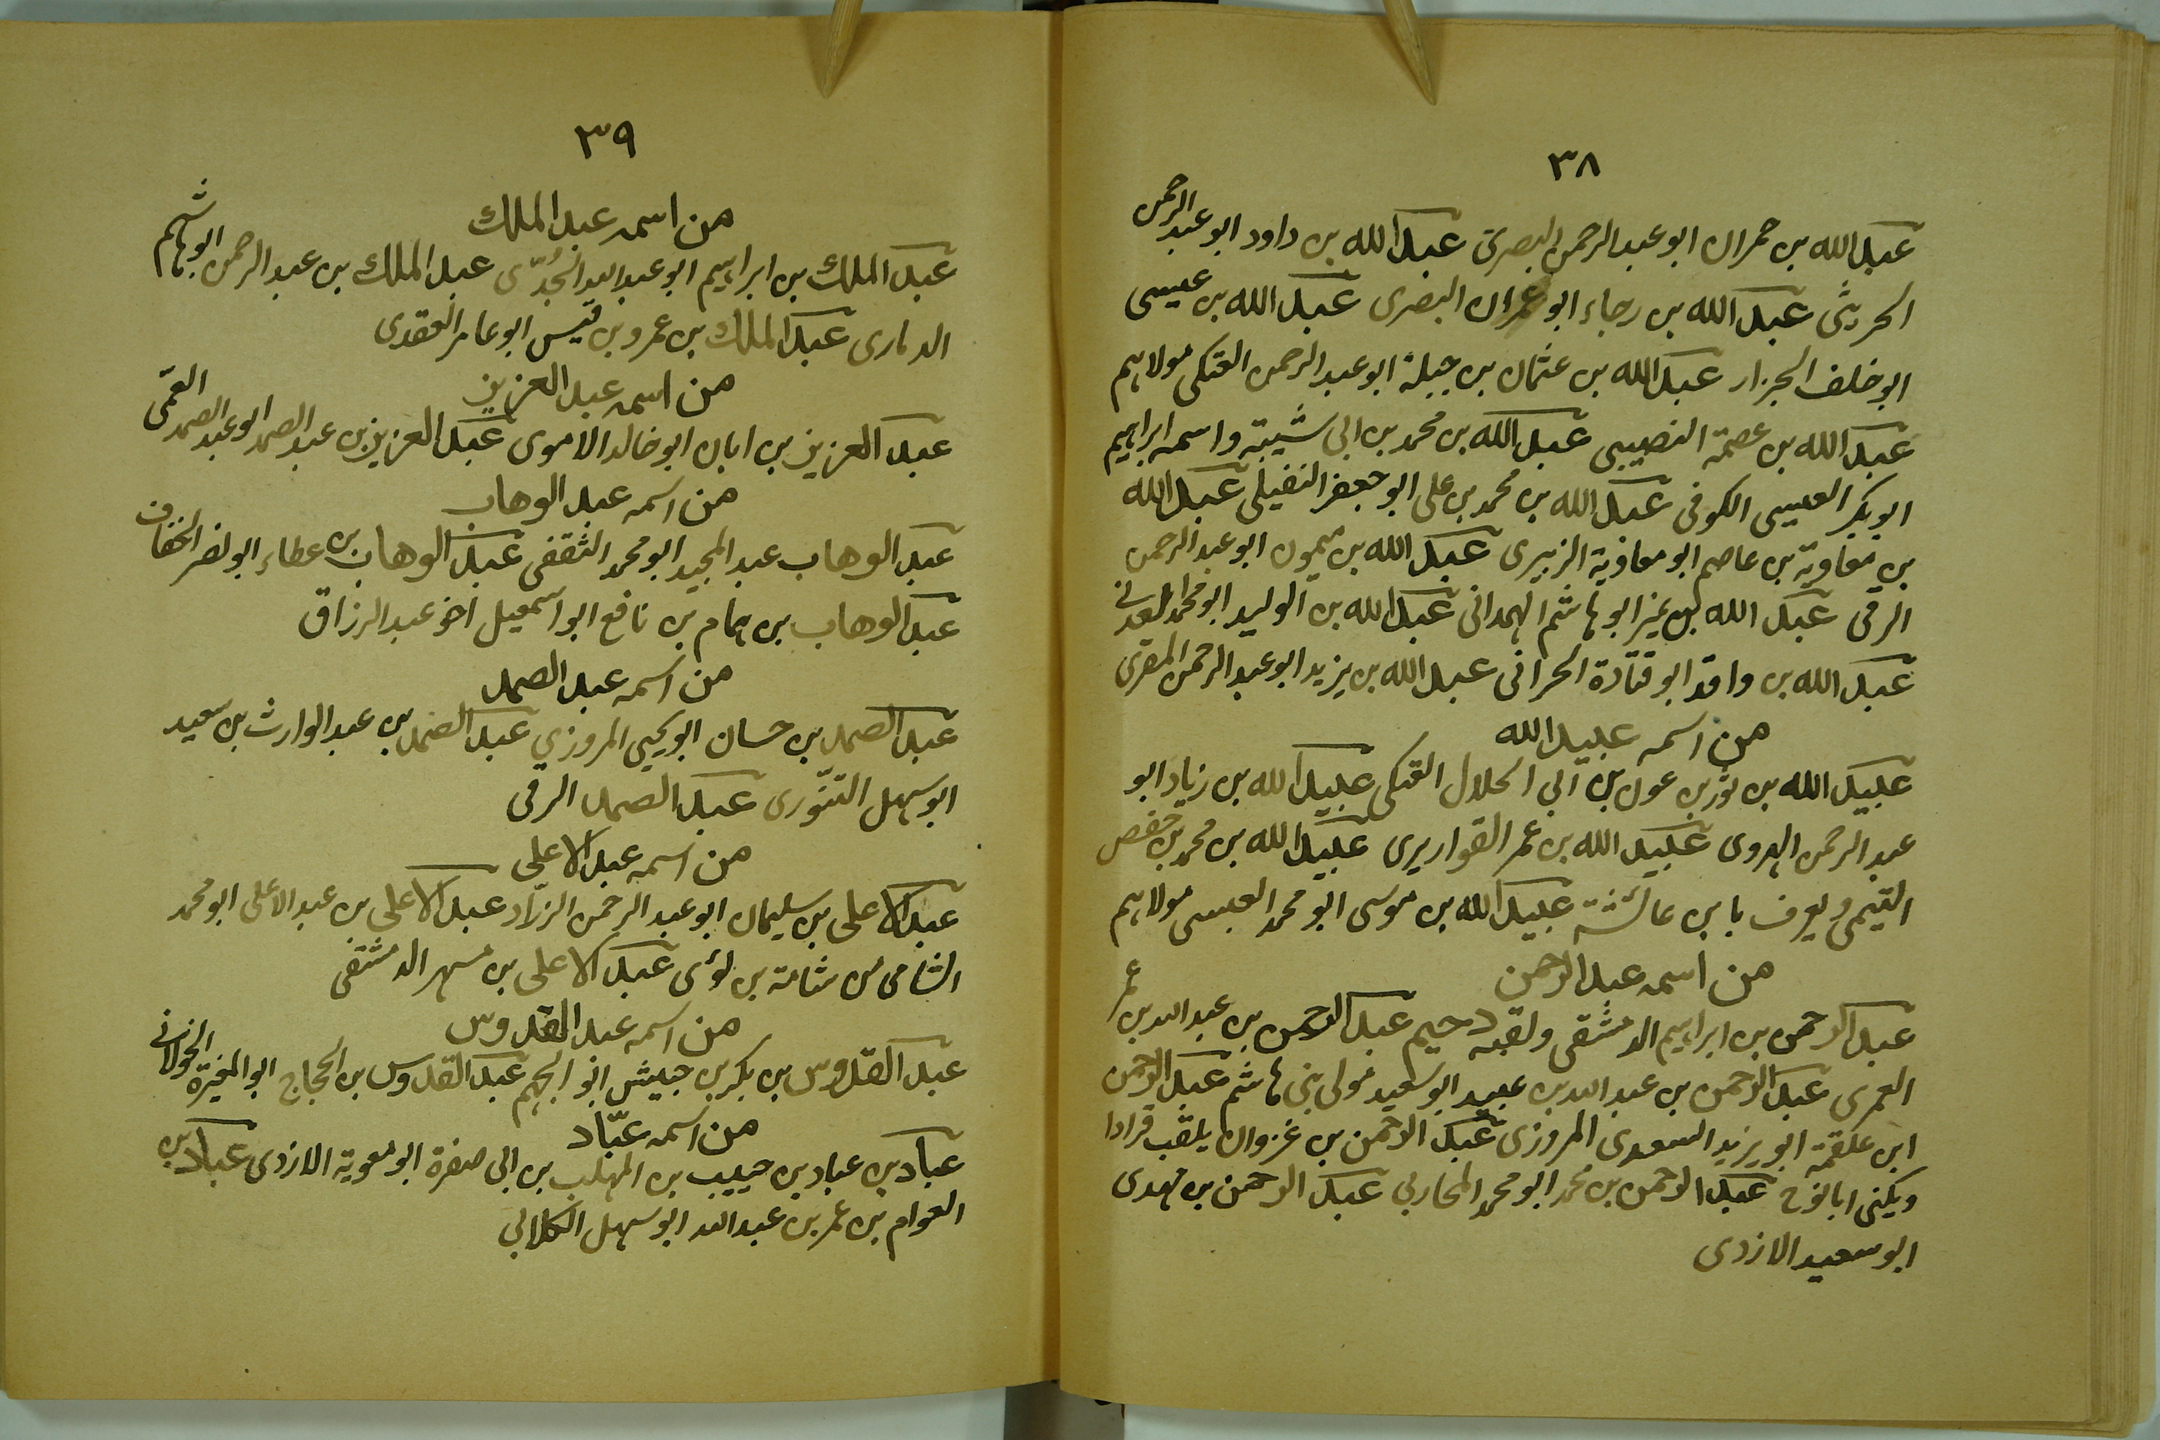 ٣٨
عبد الله بن حمران ابو عبد الرحمن البصرى عبد الله بن داود ابو عبد الرحمن
الحريثى عبد الله بن رجاء ابو عمران البصرى عبد الله بن عيسى
ابو خلف الجزار عبد الله بن عثمان بن جبلة ابو عبد الرحمن العتكى مولاهم
عبد الله بن عصمة النصيبى عبد الله بن محمد بن ابى شيبة واسمه ابراهيم
ابو بكر العبسى الكوفى عبد الله بن محمد بن على ابو جعفر النفيلى عبد الله
بن معاوية بن عاصم ابو معاوية الزبيرى عبد الله بن ميمون ابو عبد الرحمن
الرقى عبد الله بن نمير ابو هاشم الهمدانى عبد الله بن الوليد ابو محمد العدنى
عبد الله بن واقد ابو قتادة الحرانى عبد الله بن يزيد ابو عبد الرحمن المقرى
من اسمه عبيد الله
عبيد الله بن ثور بن عون بن ابى الحلال العتكى عبيد الله بن زياد ابو
عبد الرحمن الهروى عبيد الله بن عمر القواريرى عبيد الله بن محمد بن حفص
التيمى ويعرف بابن عائشة عبيد الله بن موسى ابو محمد العبسى مولاهم
من اسمه عبد الرحمن
عبد الرحمن بن ابراهيم الدمشقى ولقبه دحيم عبد الرحمن بن عبد الله بن عمر
العمرى عبد الرحمن بن عبد الله بن عبيد ابو سعيد مولى بنى هاشم عبد الرحمن
ابن علقمة ابو يزيد السعدى المروزى عبد الرحمن بن غزوان يلقب قرادا
ويكنى ابا نوح عبد الرحمن بن محمد ابو محمد المحاربى عبد الرحمن بن مهدى
ابو سعيد الازدى
٣٩
من اسمه عبد الملك
عبد الملك بن ابراهيم ابو عبد الله الجُدّى عبد الملك بن عبد الرحمن ابو هاشم
الدمارى عبد الملك بن عمرو بن قيس ابو عامر العقدى
من اسمه عبد العزيز
عبد العزيز بن ابان ابو خالد الاموى عبد العزيز بن عبد الصمد ابو عبد الصمد العمّى
من اسمه عبد الوهاب
عبد الوهاب عبد المجيد ابو محمد الثقفى عبد الوهاب بن عطاء ابو نصر الخفاف
عبد الوهاب بن همام بن نافع ابو اسمعيل اخو عبد الرزاق
من اسمه عبد الصمد
عبد الصمد بن حسان ابو يحيى المروزي عبد الصمد بن عبد الوارث بن سعيد
ابو سهل التنّورى عبد الصمد الرقى
من اسمه عبد الاعلى
عبد الاعلى بن سليمان ابو عبد الرحمن الزرّاد عبد الاعلى بن عبد الاعلى ابو محمد
الشامى من شامة بن لؤى عبد الاعلى بن مسهر الدمشقى
من اسمه عبد القدوس
عبد القدوس بن بكر بن جيش ابو الجهم عبد القدوس بن الحجاج ابو المغيرة الخولانى
من اسمه عبّاد
عباد بن عباد بن حبيب بن المهلب بن ابى صفرة ابو معوية الازدى عباد بن
العوام بن عمر بن عبد الله ابو سهل الكلابى